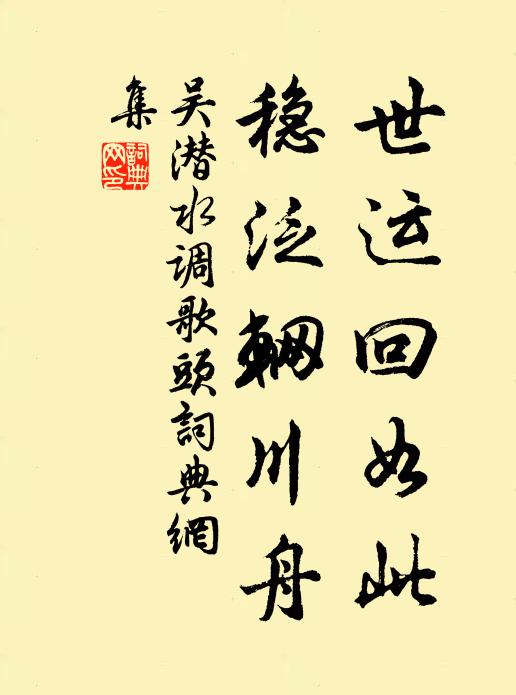 世运回如此
稳泛辋川舟
吴潜水调歌头詞典網
集
詞典网印